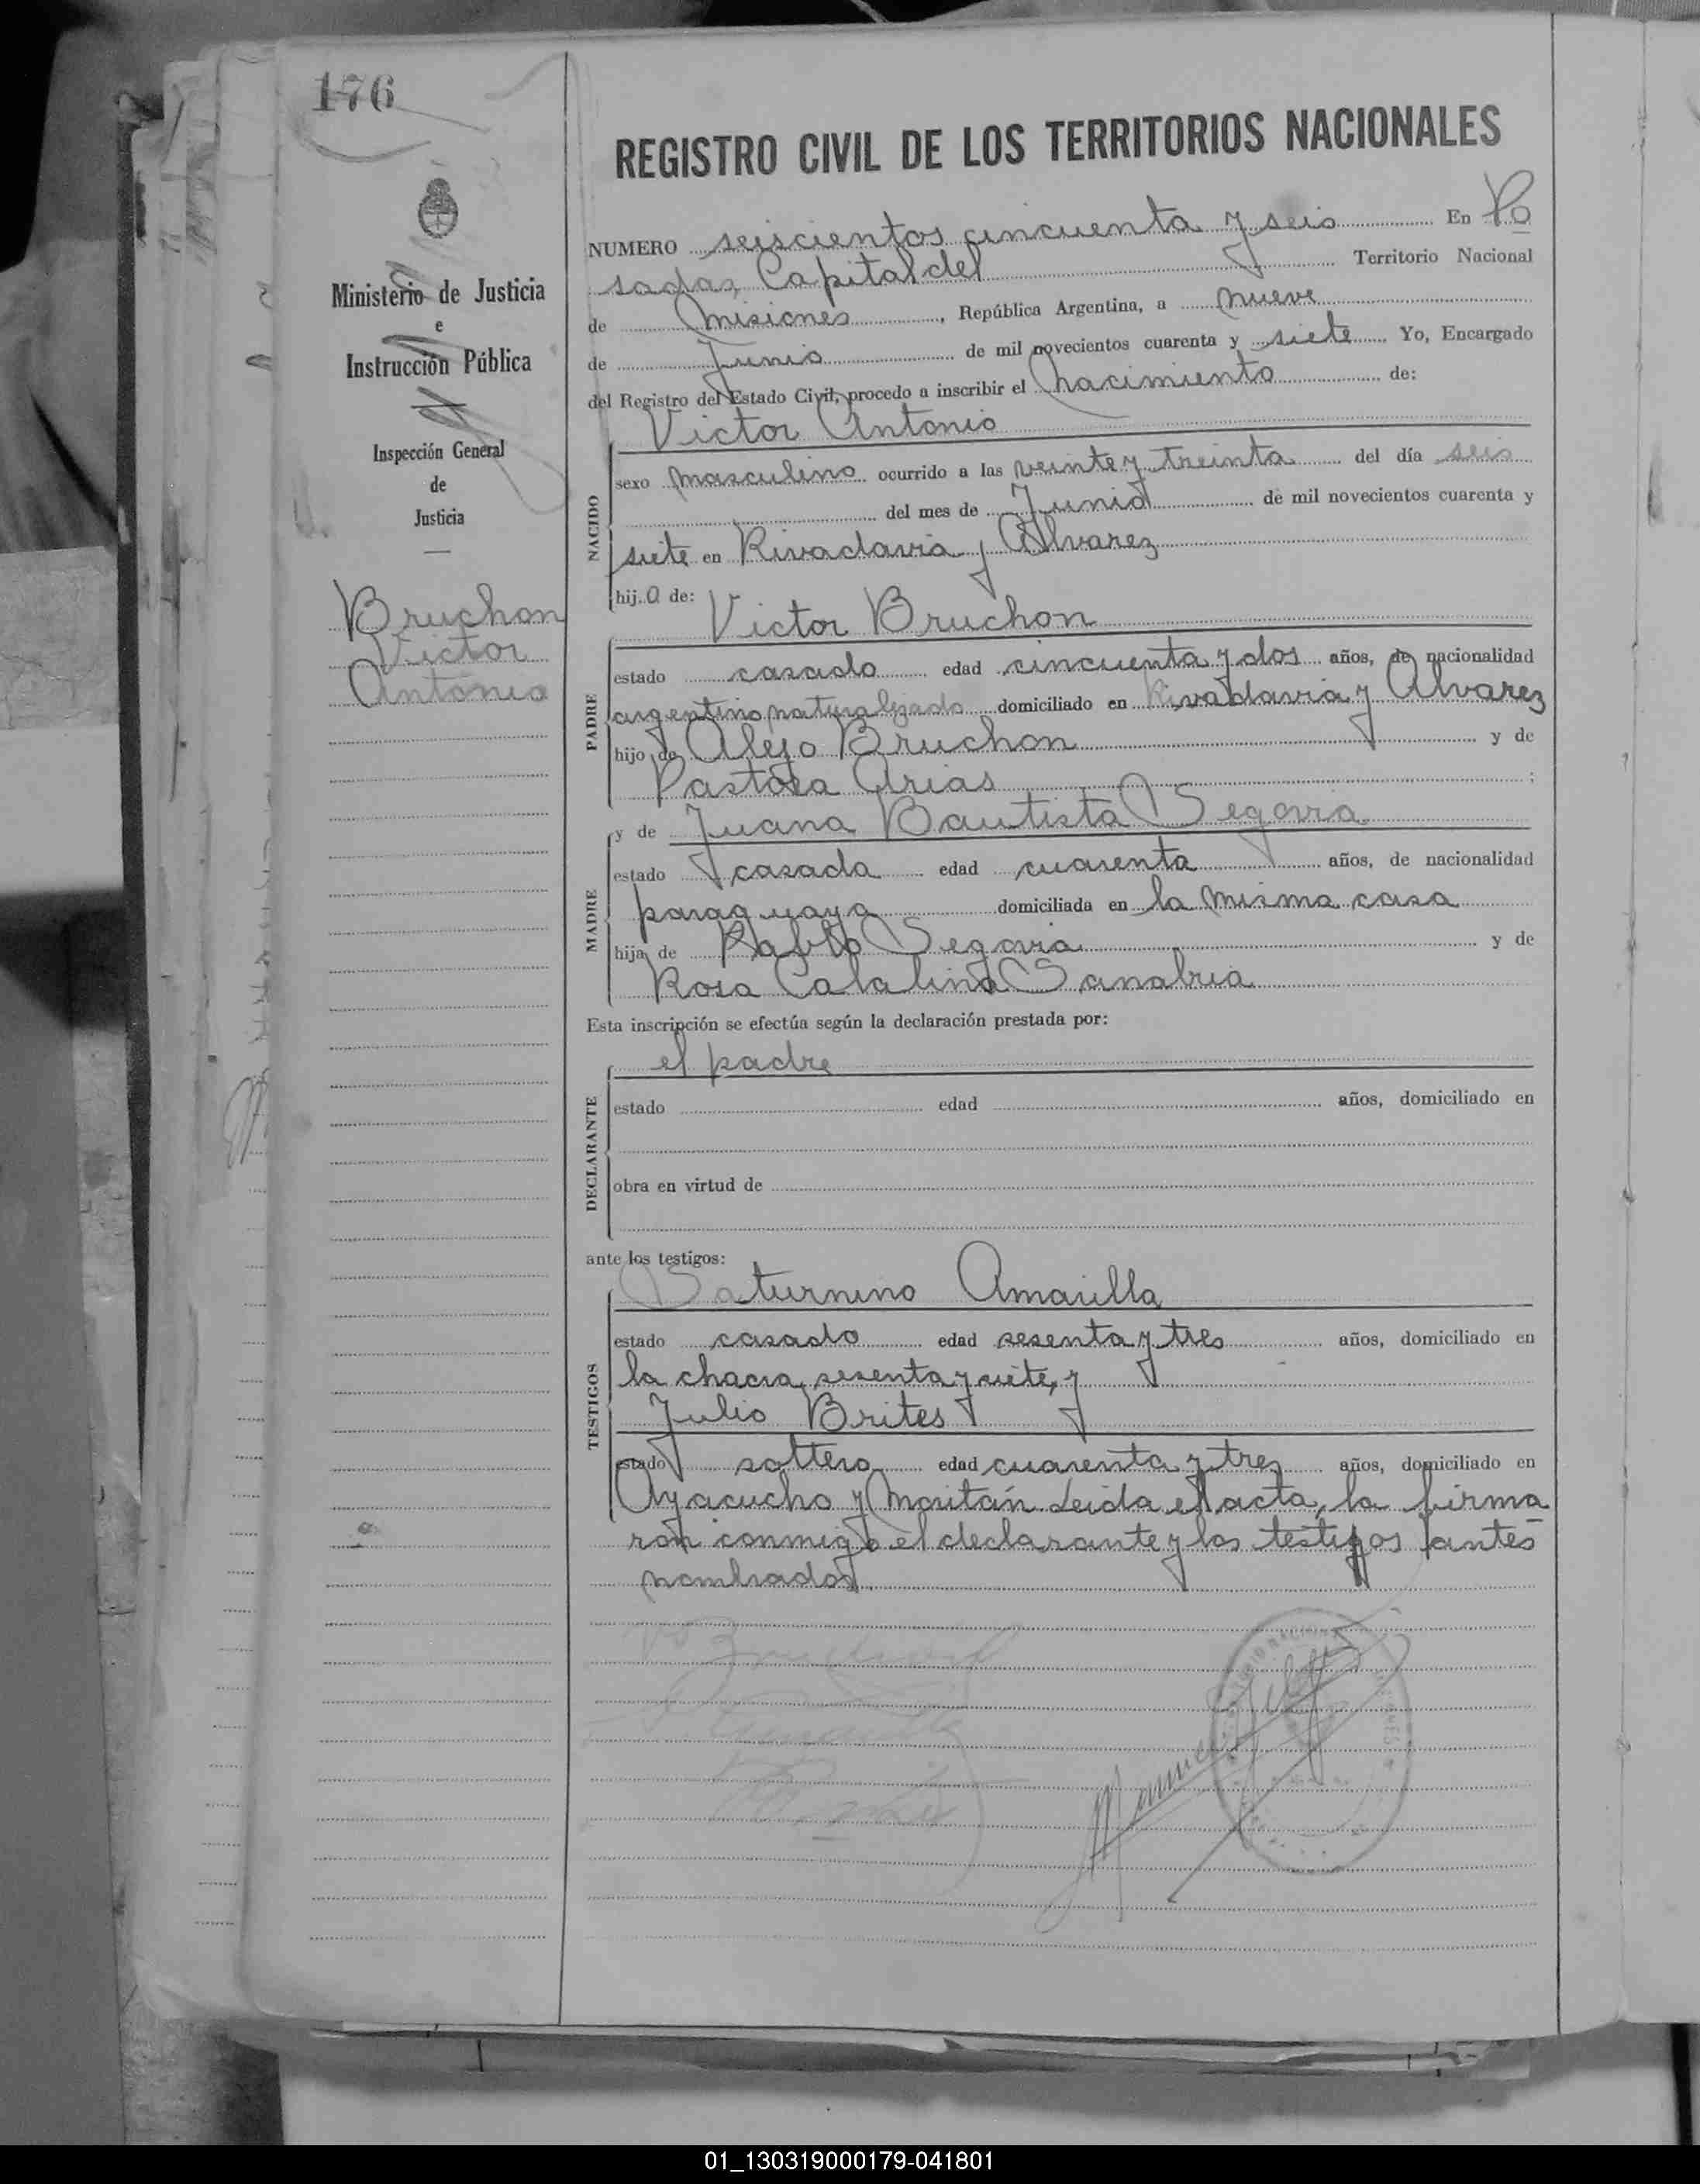 176
REGISTRO CIVIL DE LOS TERRITORIOS NACIONALES
Ministerio de Justicia
e
Instrucción Pública
Inspección General
de
Justicia
Bruchon
Victor
Antonio
NUMERO seiscientos cincuenta y seis En Po
sadas, Capital del Territorio Nacional
de Misiones, República Argentina, a nueve
de Junio de mil novecientos cuarenta y siete Yo, Encargado
del Registro del Estado Civil, procedo a inscribir el nacimiento de:
Victor Antonio
NACIDO
sexo masculino ocurrido a las veinte y treinta del día seis
del mes de Junio de mil novecientos cuarenta y
siete en Rivadavia y Alvarez
hijo de:
Victor Bruchon
PADRE
estado casado edad cincuenta y dos años, de nacionalidad
argentino naturalizado domiciliado en Rivadavia y Alvarez
hijo de Alejo Bruchon y de
Pastora Arias ;
y de Juana Bautista Segovia
MADRE
estado casada edad cuarenta años, de nacionalidad
paraguaya domiciliada en la misma casa
hija de Pablo Segovia y de
Rosa Catalina Sanabria
Esta inscripción se efectúa según la declaración prestada por:
el padre
DECLARANTE
estado edad años, domiciliado en
obra en virtud de
ante los testigos:
Saturnino Amarilla
TESTIGOS
estado casado edad sesenta y tres años, domiciliado en
la chacra sesenta y siete, y
Julio Brites
estado soltero edad cuarenta y tres años, domiciliado en
Ayacucho y Maitán. Leida el acta, la firma
ron conmigo el declarante y los testigos antes
nombrados
01_130319000179-041801